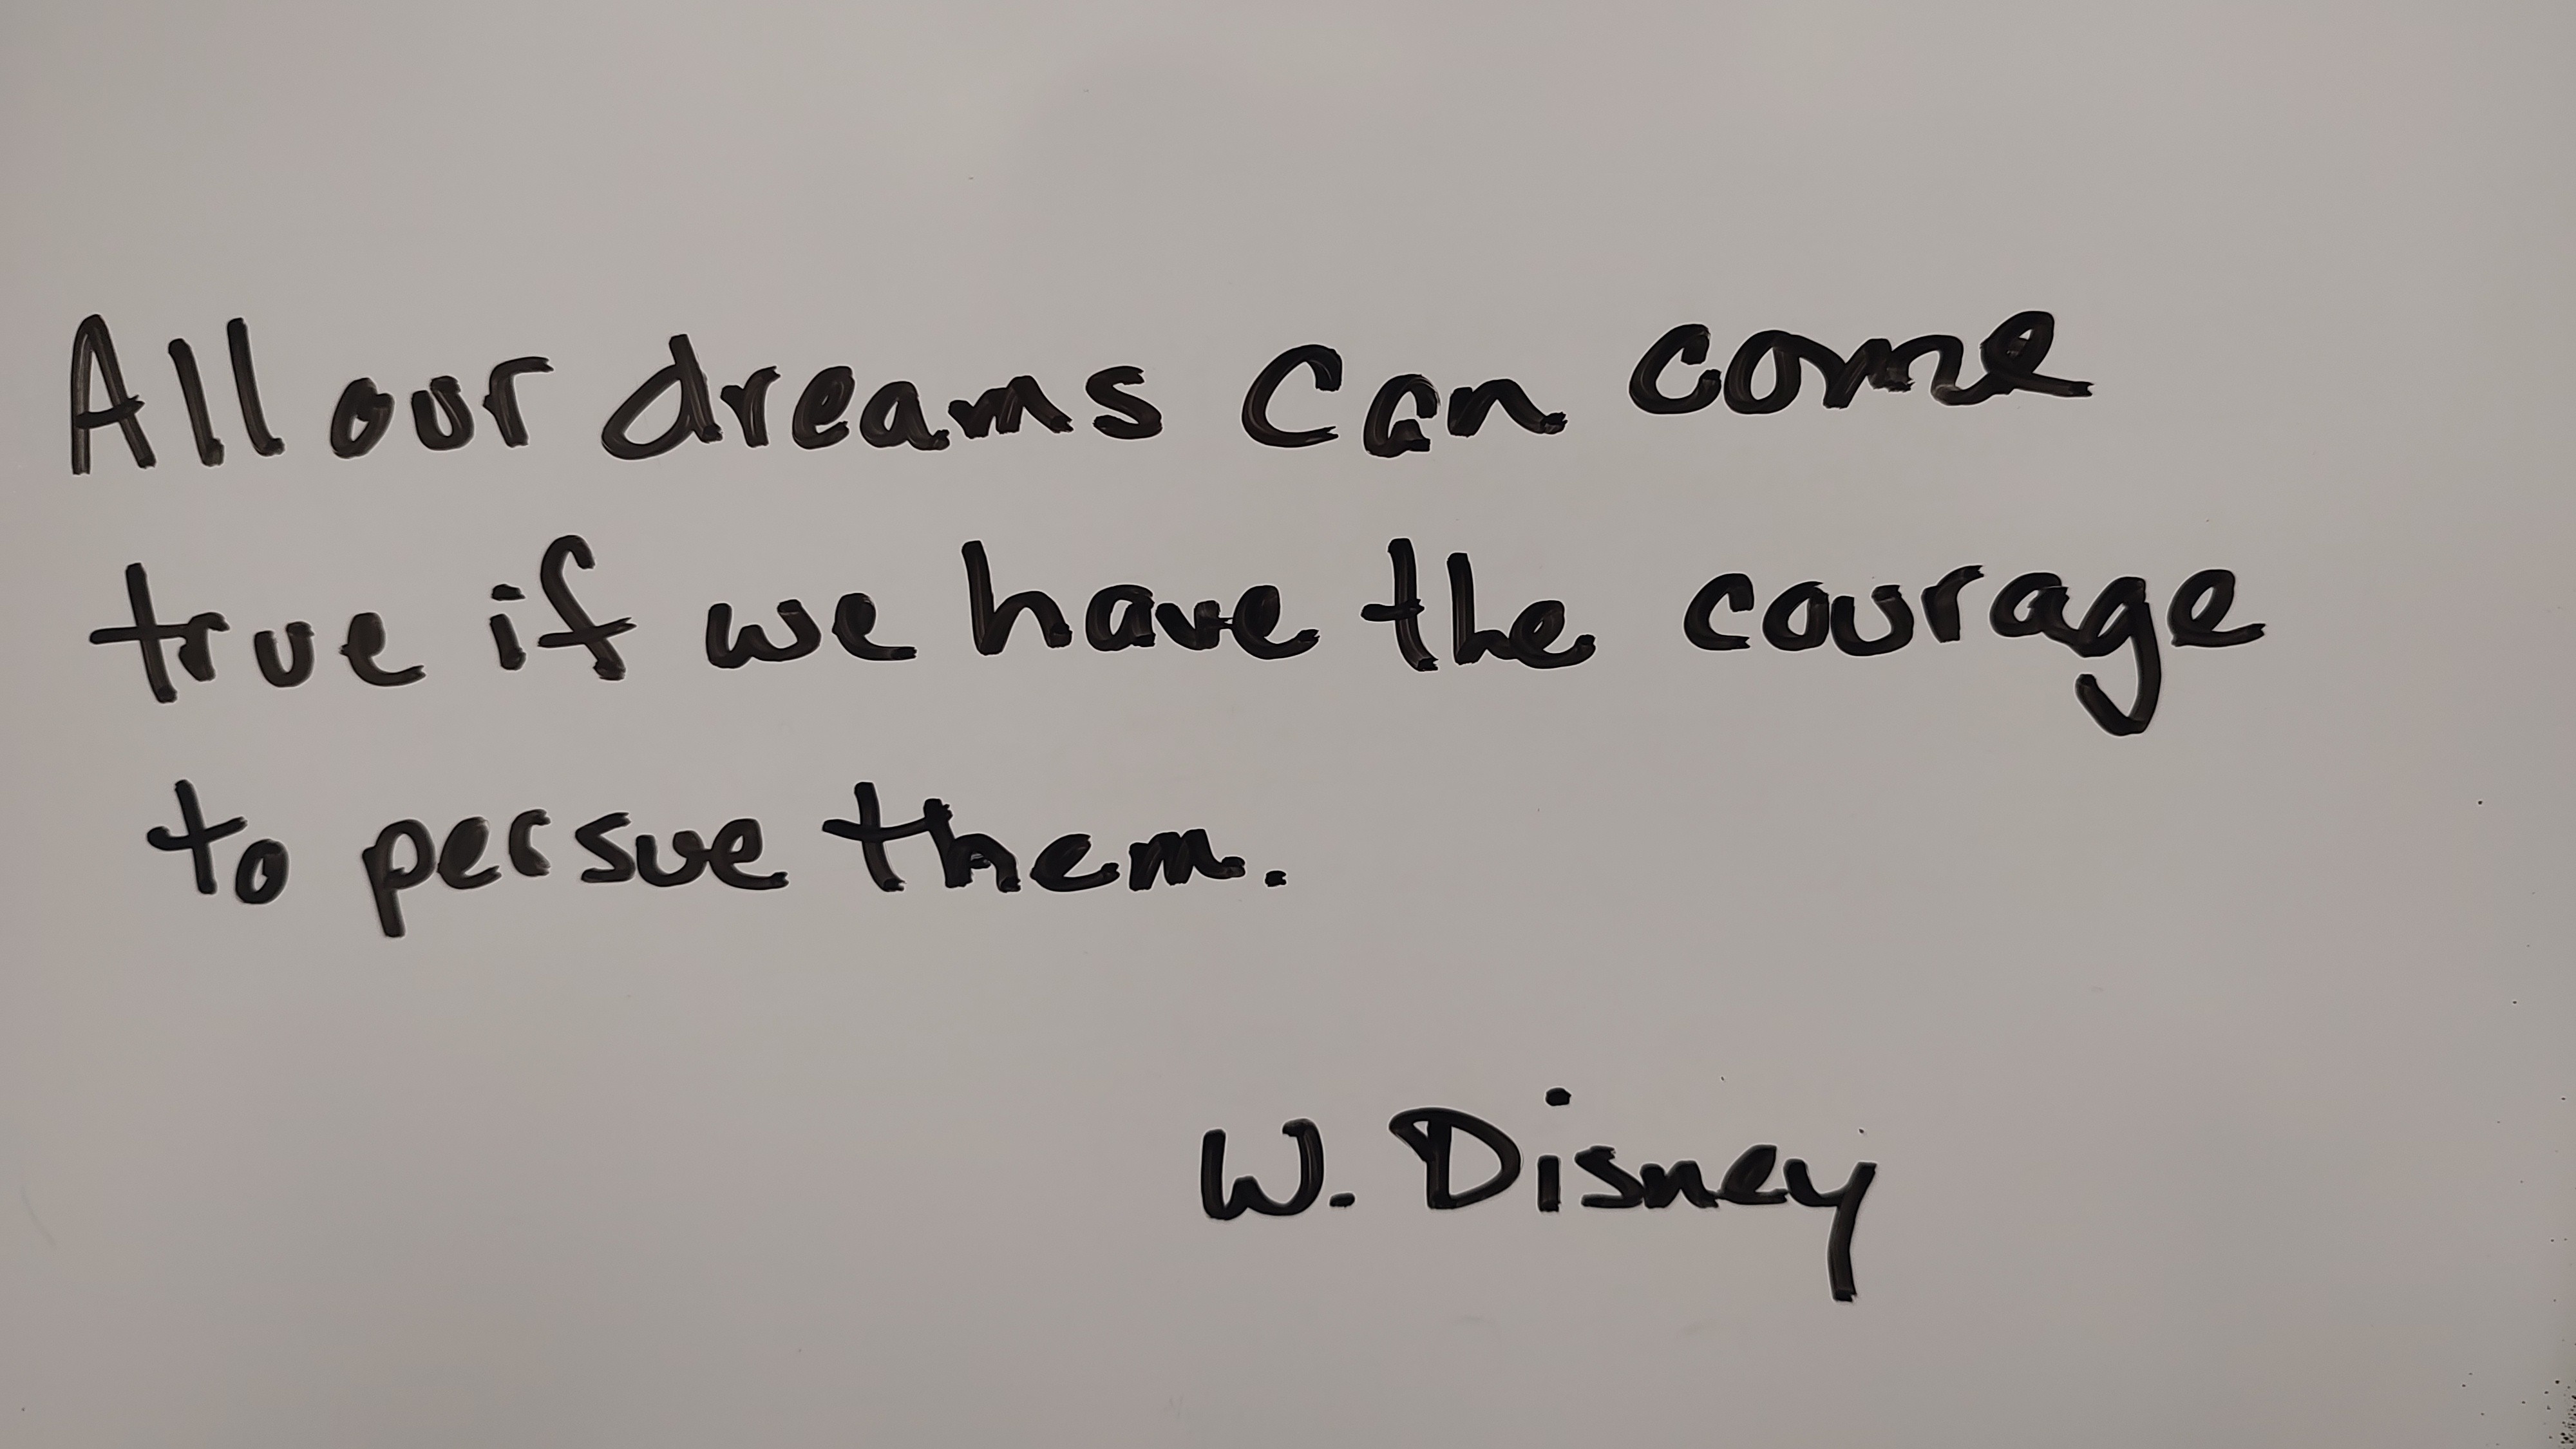 All our dreams can come
true if we have the courage
to persue them.
W. Disney